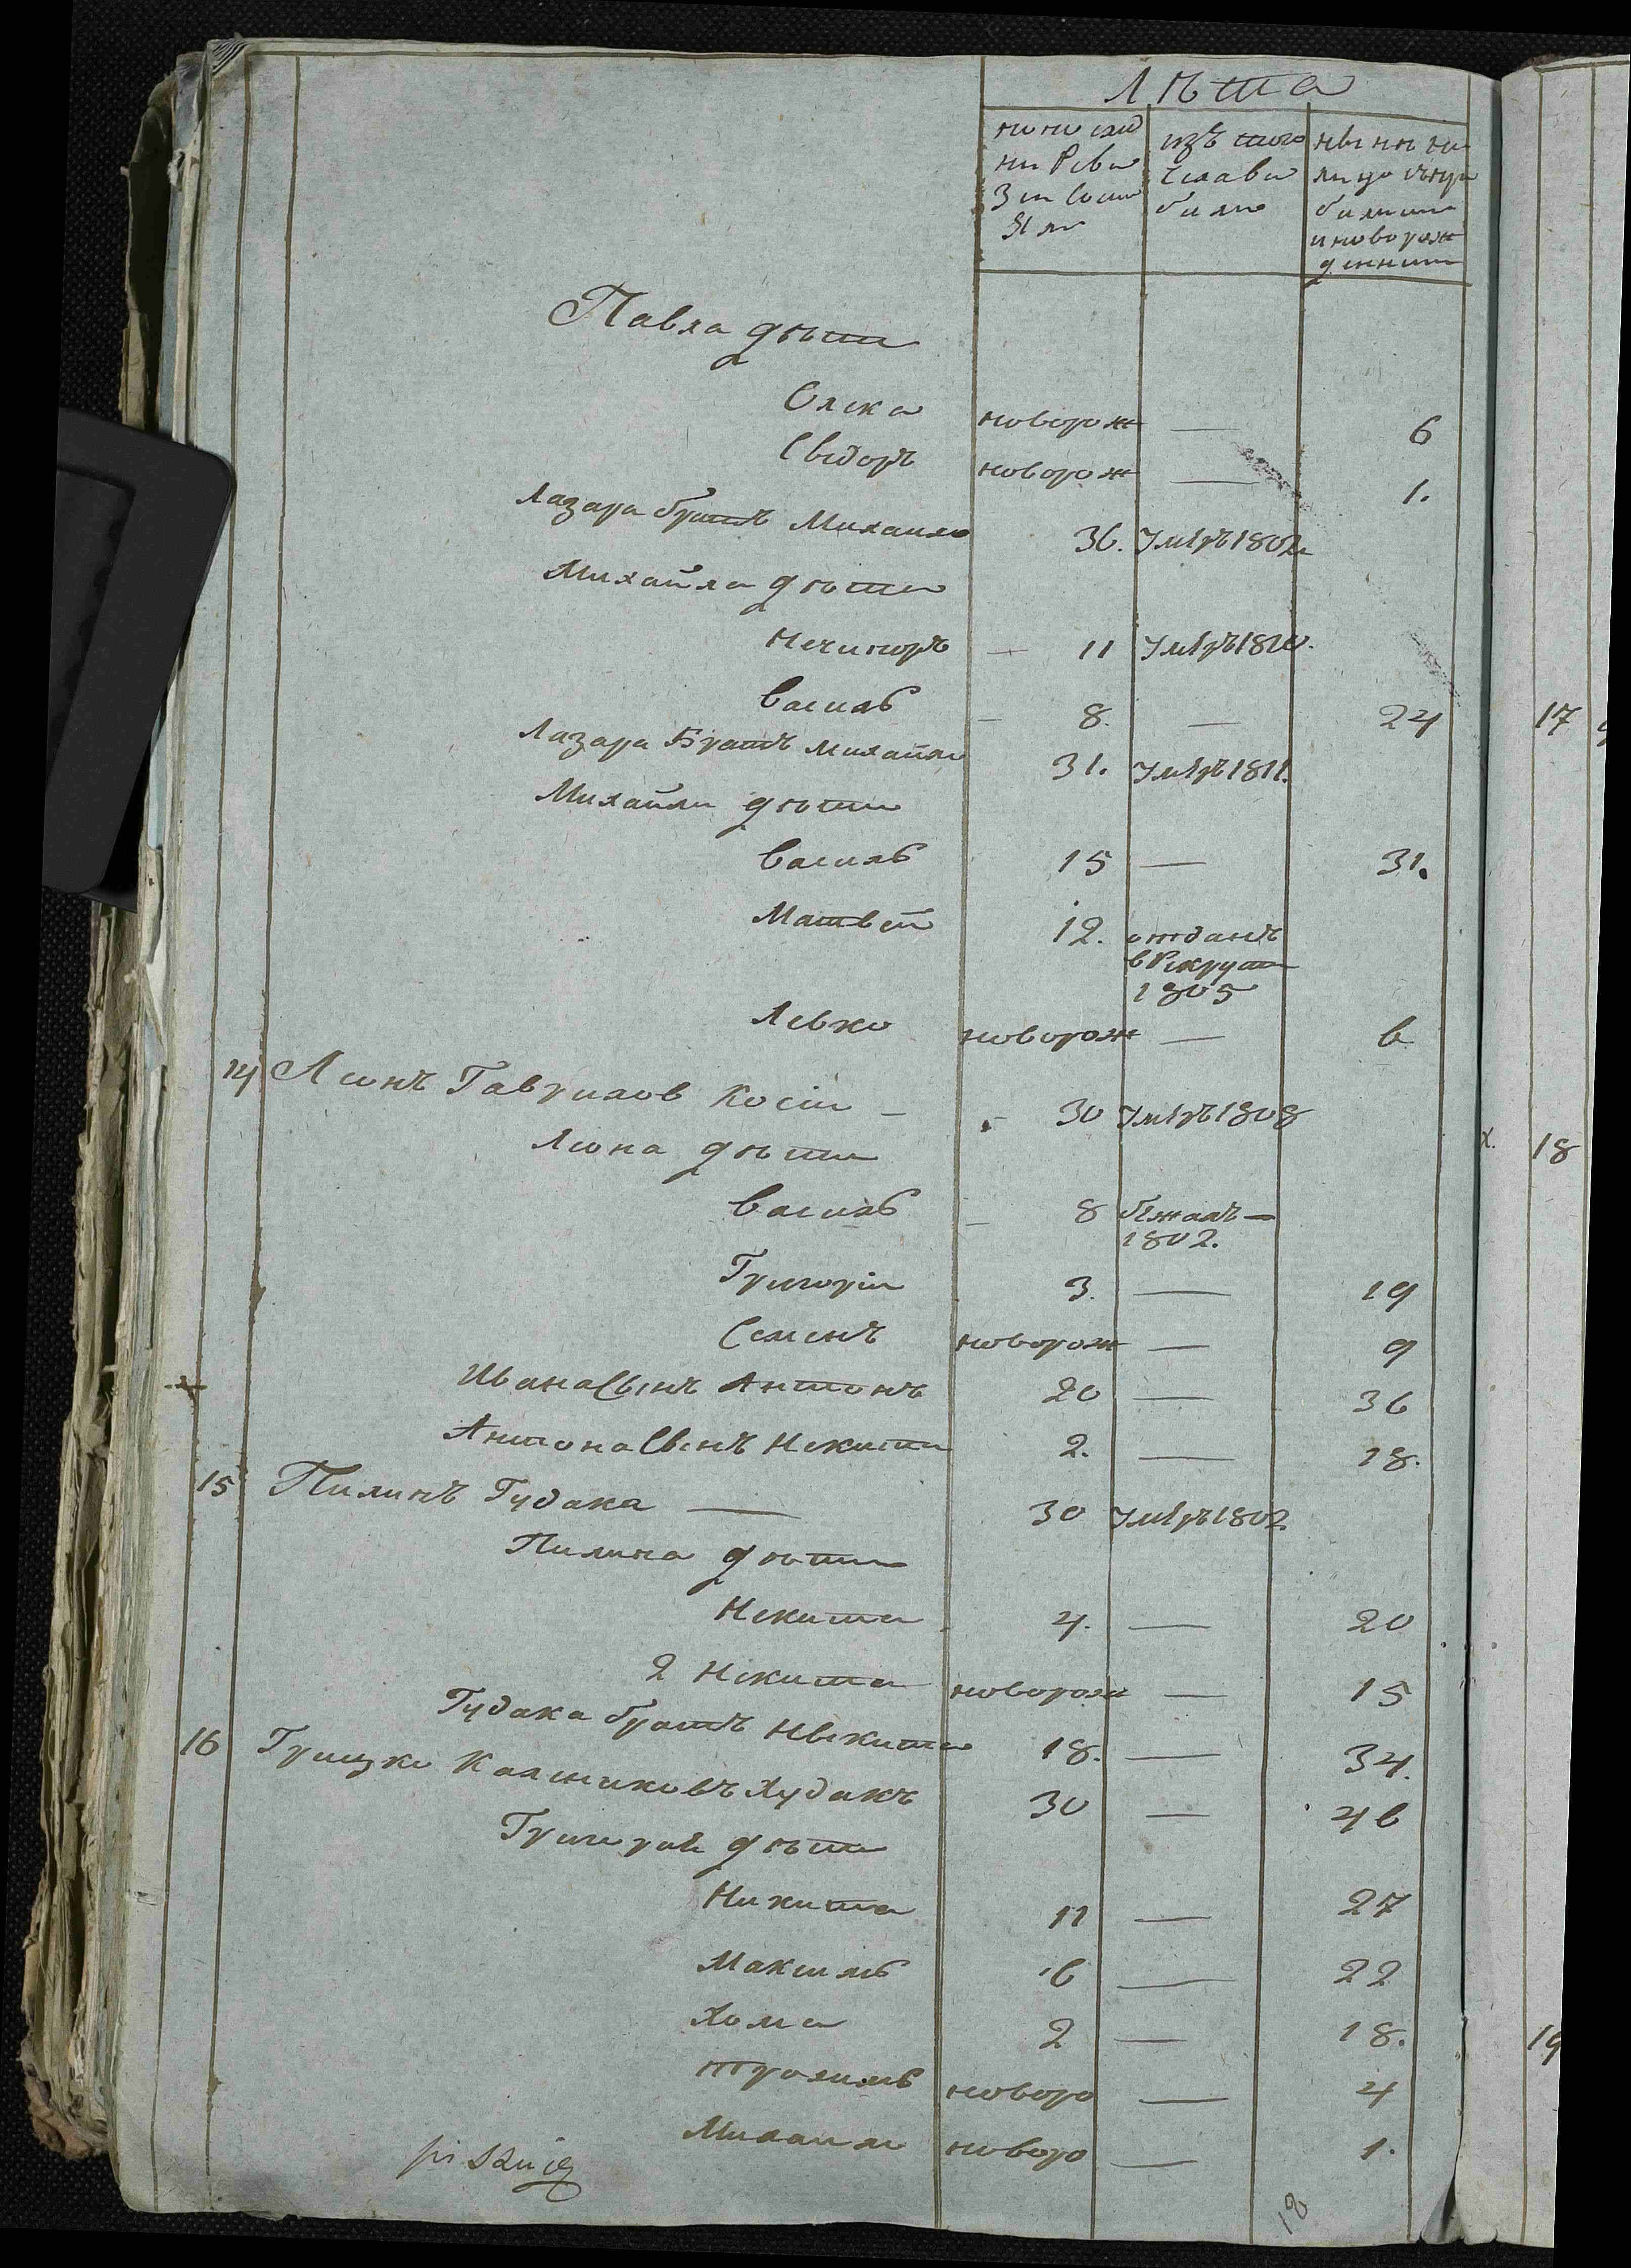 лѣта
по по слѣд
ни Реви
зіи Состо
яли
изъ того
Числа вы
было
нынѣ на
лицо съ при
былыми
и новорож
денными
Павла дѣти
Олекса новорож — 6
Сыдоръ новорож — 1.
Лазара братъ Михаило 36. Умꙗръ 1802
Михайла дѣти
Нечипоръ — 11 Умѣръ 1810.
Василь — 8. — 24
Лазара Братъ Михайло 31. Умѣръ 1811.
Михайли дѣти
Василь 15 — 31.
Матвей 12. отданъ
в Рекруты
1805
Левко новорож — 6
14 Леонъ Гавриловъ Косіи — 30 Умѣръ 1808
Леона дѣти
Василь — 8 бежалъ —
1802.
Григоріи 3. — 19
Семенъ новорож — 9
Ивана Сынъ Антонъ 20 — 36
Антона Сынъ Некита 2. — 18.
15 Пилипъ Гудака — 30 Умѣръ 1802.
Пилипа дѣти
Некита 4. — 20
2 Некита новорож — 15
Гудака братъ Некита 18. — 34.
16 Грицко Калениковъ Худакъ 30 — 46
Григорія дѣти
Никита 11 — 27
Максимъ 6 — 22
Хома 2 — 18.
Трохимъ новоро — 4
Михаило новоро — 1.
18
17
18
19